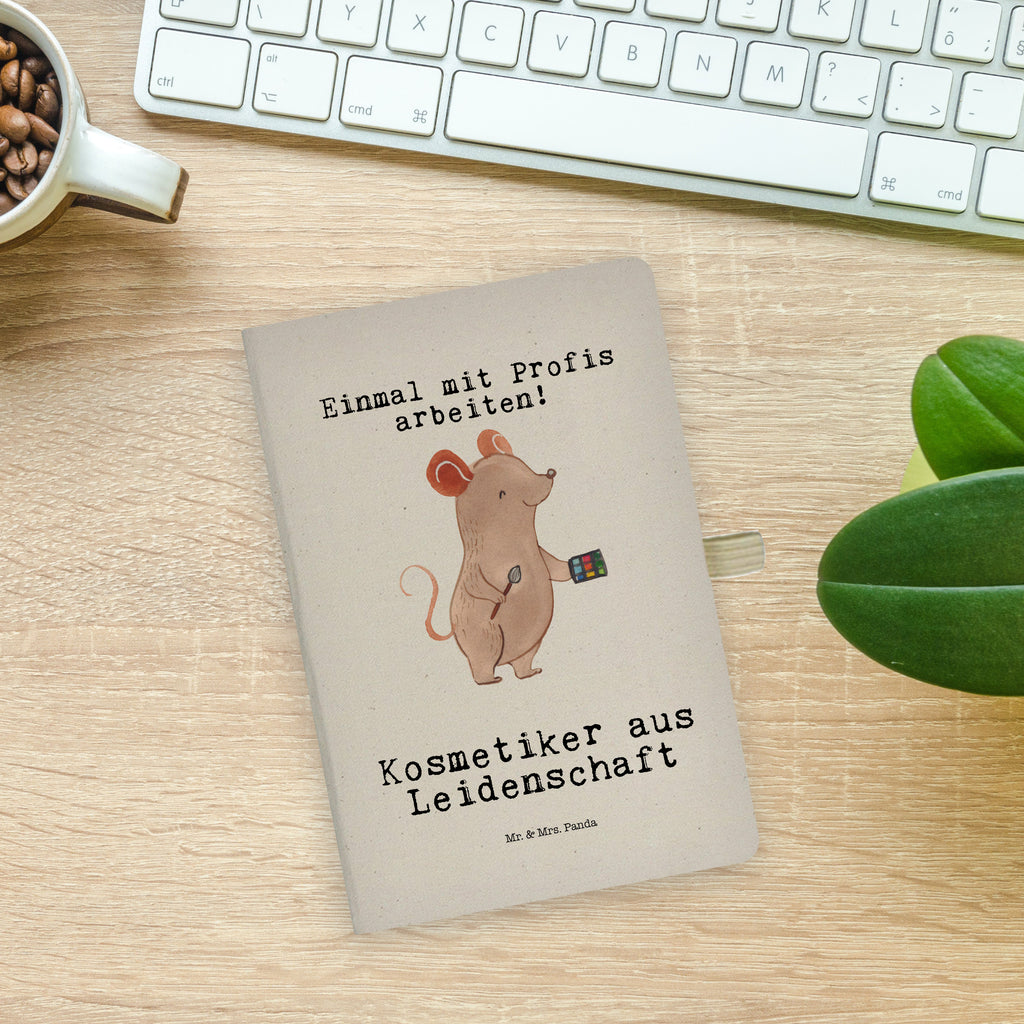 Y X C V B N M ? < : > _ -
ctrl alt ⌥ cmd ⌘ ⌘ cmd
J K L
Einmal mit Profis
arbeiten!
Kosmetiker aus
Leidenschaft
Mr. & Mrs. Panda